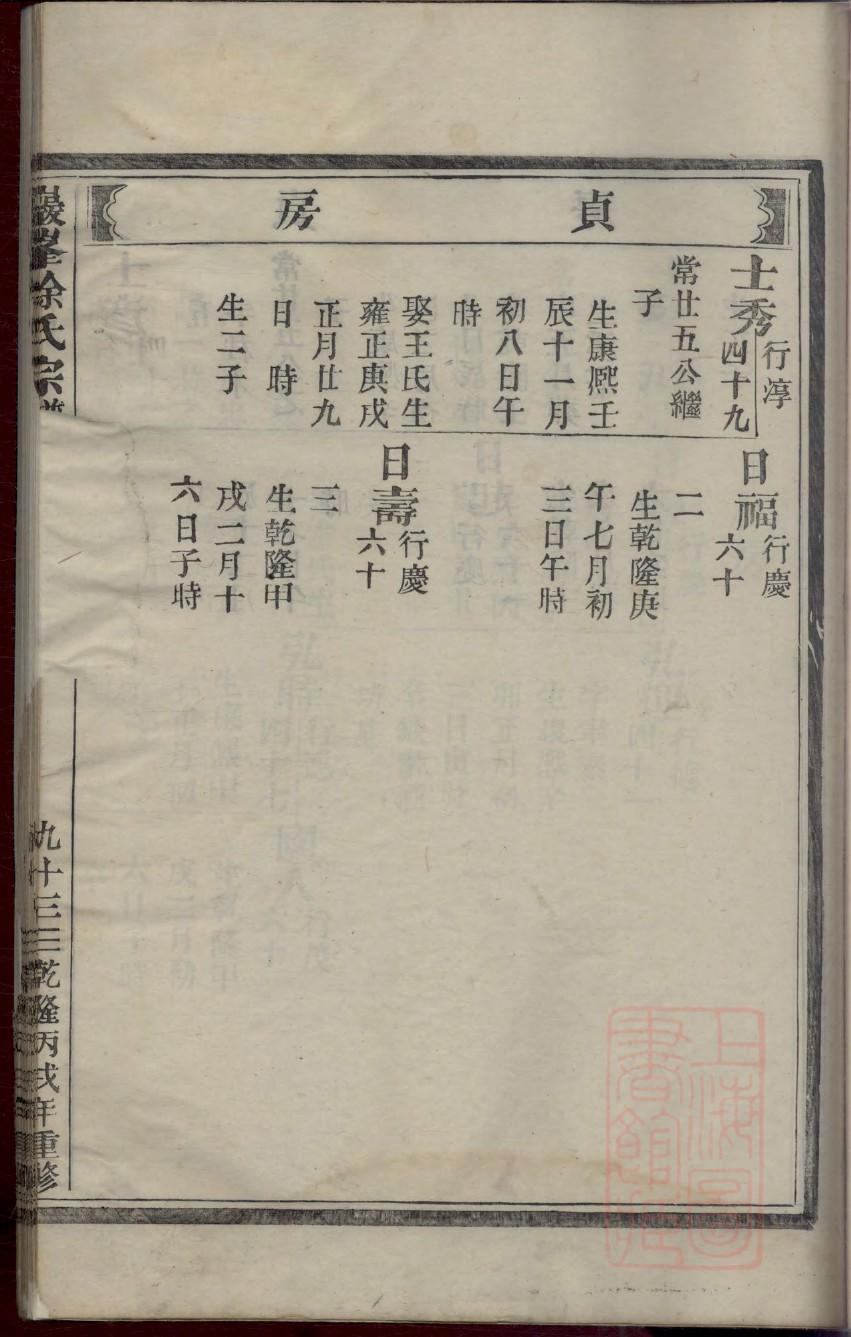 貞房
士秀
行淳
四十九
常廿五公繼
子
生康熈壬
辰十一月
初八日午
時
娶王氏生
雍正庚戌
正月廿九
日　時
生二子
日福
行慶
六十
二
生乾隆庚
午七月初
三日午時
日壽
行慶
六十
三
生乾隆甲
戌二月十
六日子時
巖峯徐氏宗譜
九十三
乾隆丙戌年重修
上海圖書館藏